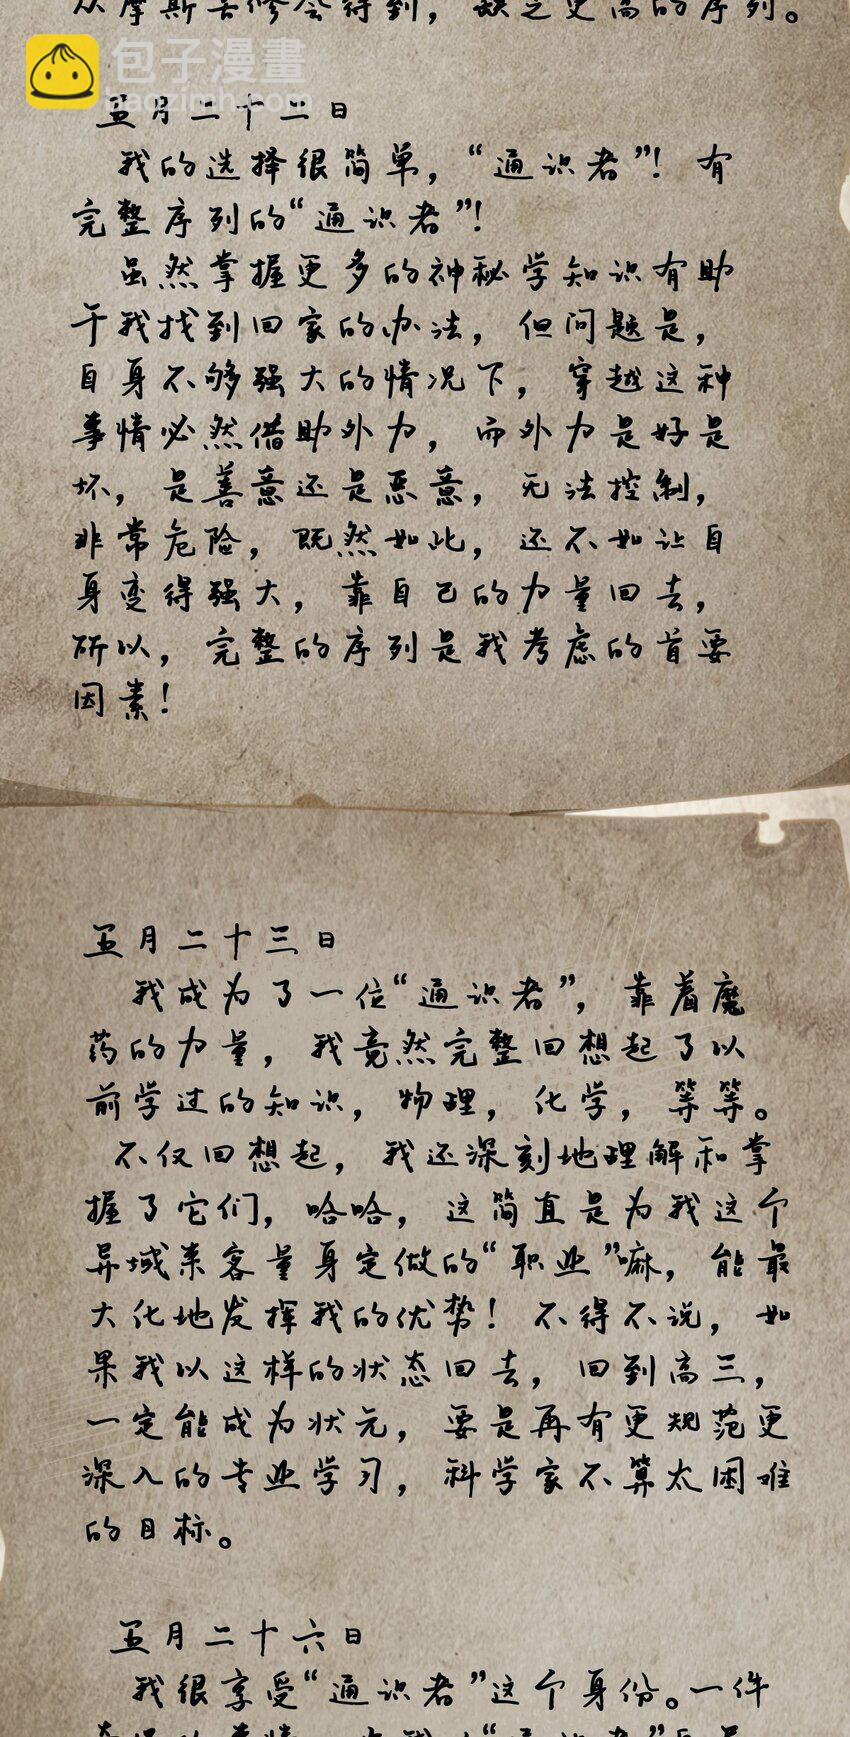 从摩斯苦修会得到，缺乏更高的序列。
包子漫畫
baozimh.com
五月二十二日
我的选择很简单，“通识者”！有
完整序列的“通识者”！
虽然掌握更多的神秘学知识有助
于我找到回家的办法，但问题是，
自身不够强大的情况下，穿越这种
事情必然借助外力，而外力是好是
坏，是善意还是恶意，无法控制，
非常危险，既然如此，还不如让自
身变得强大，靠自己的力量回去，
所以，完整的序列是我考虑的首要
因素！
五月二十三日
我成为了一位“通识者”，靠着魔
药的力量，我竟然完整回想起了以
前学过的知识，物理，化学，等等。
不仅回想起，我还深刻地理解和掌
握了它们，哈哈，这简直是为我这个
异域来客量身定做的“职业”嘛，能最
大化地发挥我的优势！不得不说，如
果我以这样的状态回去，回到高三，
一定能成为状元，要是再有更规范更
深入的专业学习，科学家不算太困难
的目标。
五月二十六日
我很享受“通识者”这个身份。一件